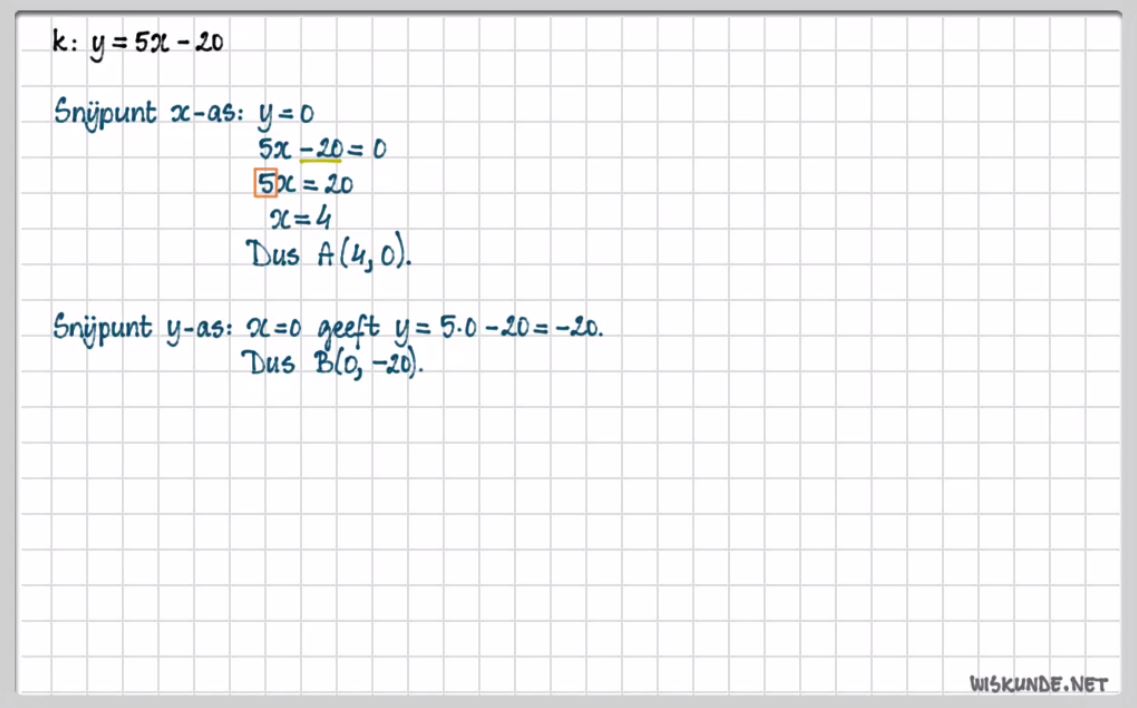 k: y = 5x - 20
Snijpunt x-as: y = 0
5x - 20 = 0
5x = 20
x = 4
Dus A(4, 0).
Snijpunt y-as: x = 0 geeft y = 5·0 - 20 = -20.
Dus B(0, -20).
WISKUNDE.NET